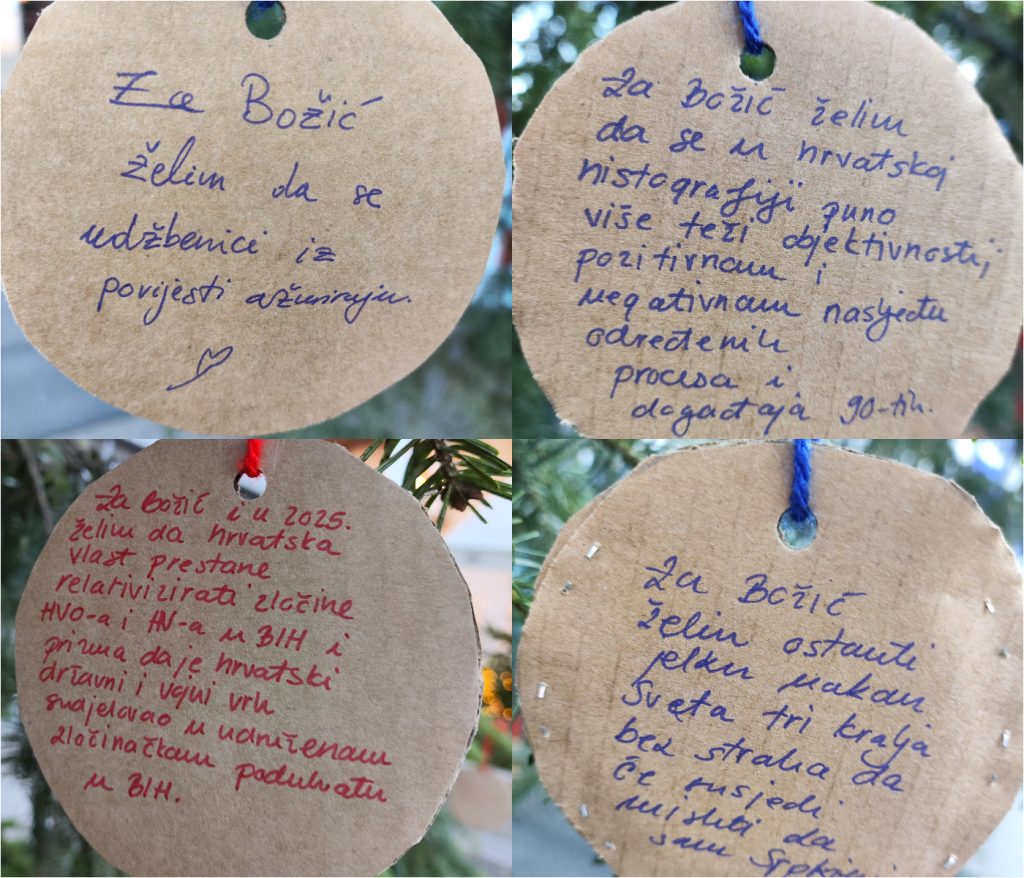 Za Božić
želim da se
udžbenici iz
povijesti ažuriraju.
Za Božić želim
da se u hrvatskoj
histografiji puno
više teži objektivnosti,
pozitivnom i
negativnom nasljeđu
određenih
procesa i
događaja 90-tih.
Za Božić i u 2025.
želim da hrvatska
vlast prestane
relativizirati zločine
HVO-a i HV-a u BIH i
prizna da je hrvatski
državni i vojni vrh
sudjelovao u udruženom
zločinačkom poduhvatu
u BIH.
Za Božić
želim ostaviti
jelku nakon
Sveta tri kralja
bez straha da
će susjedi
misliti da
sam Srpkinja